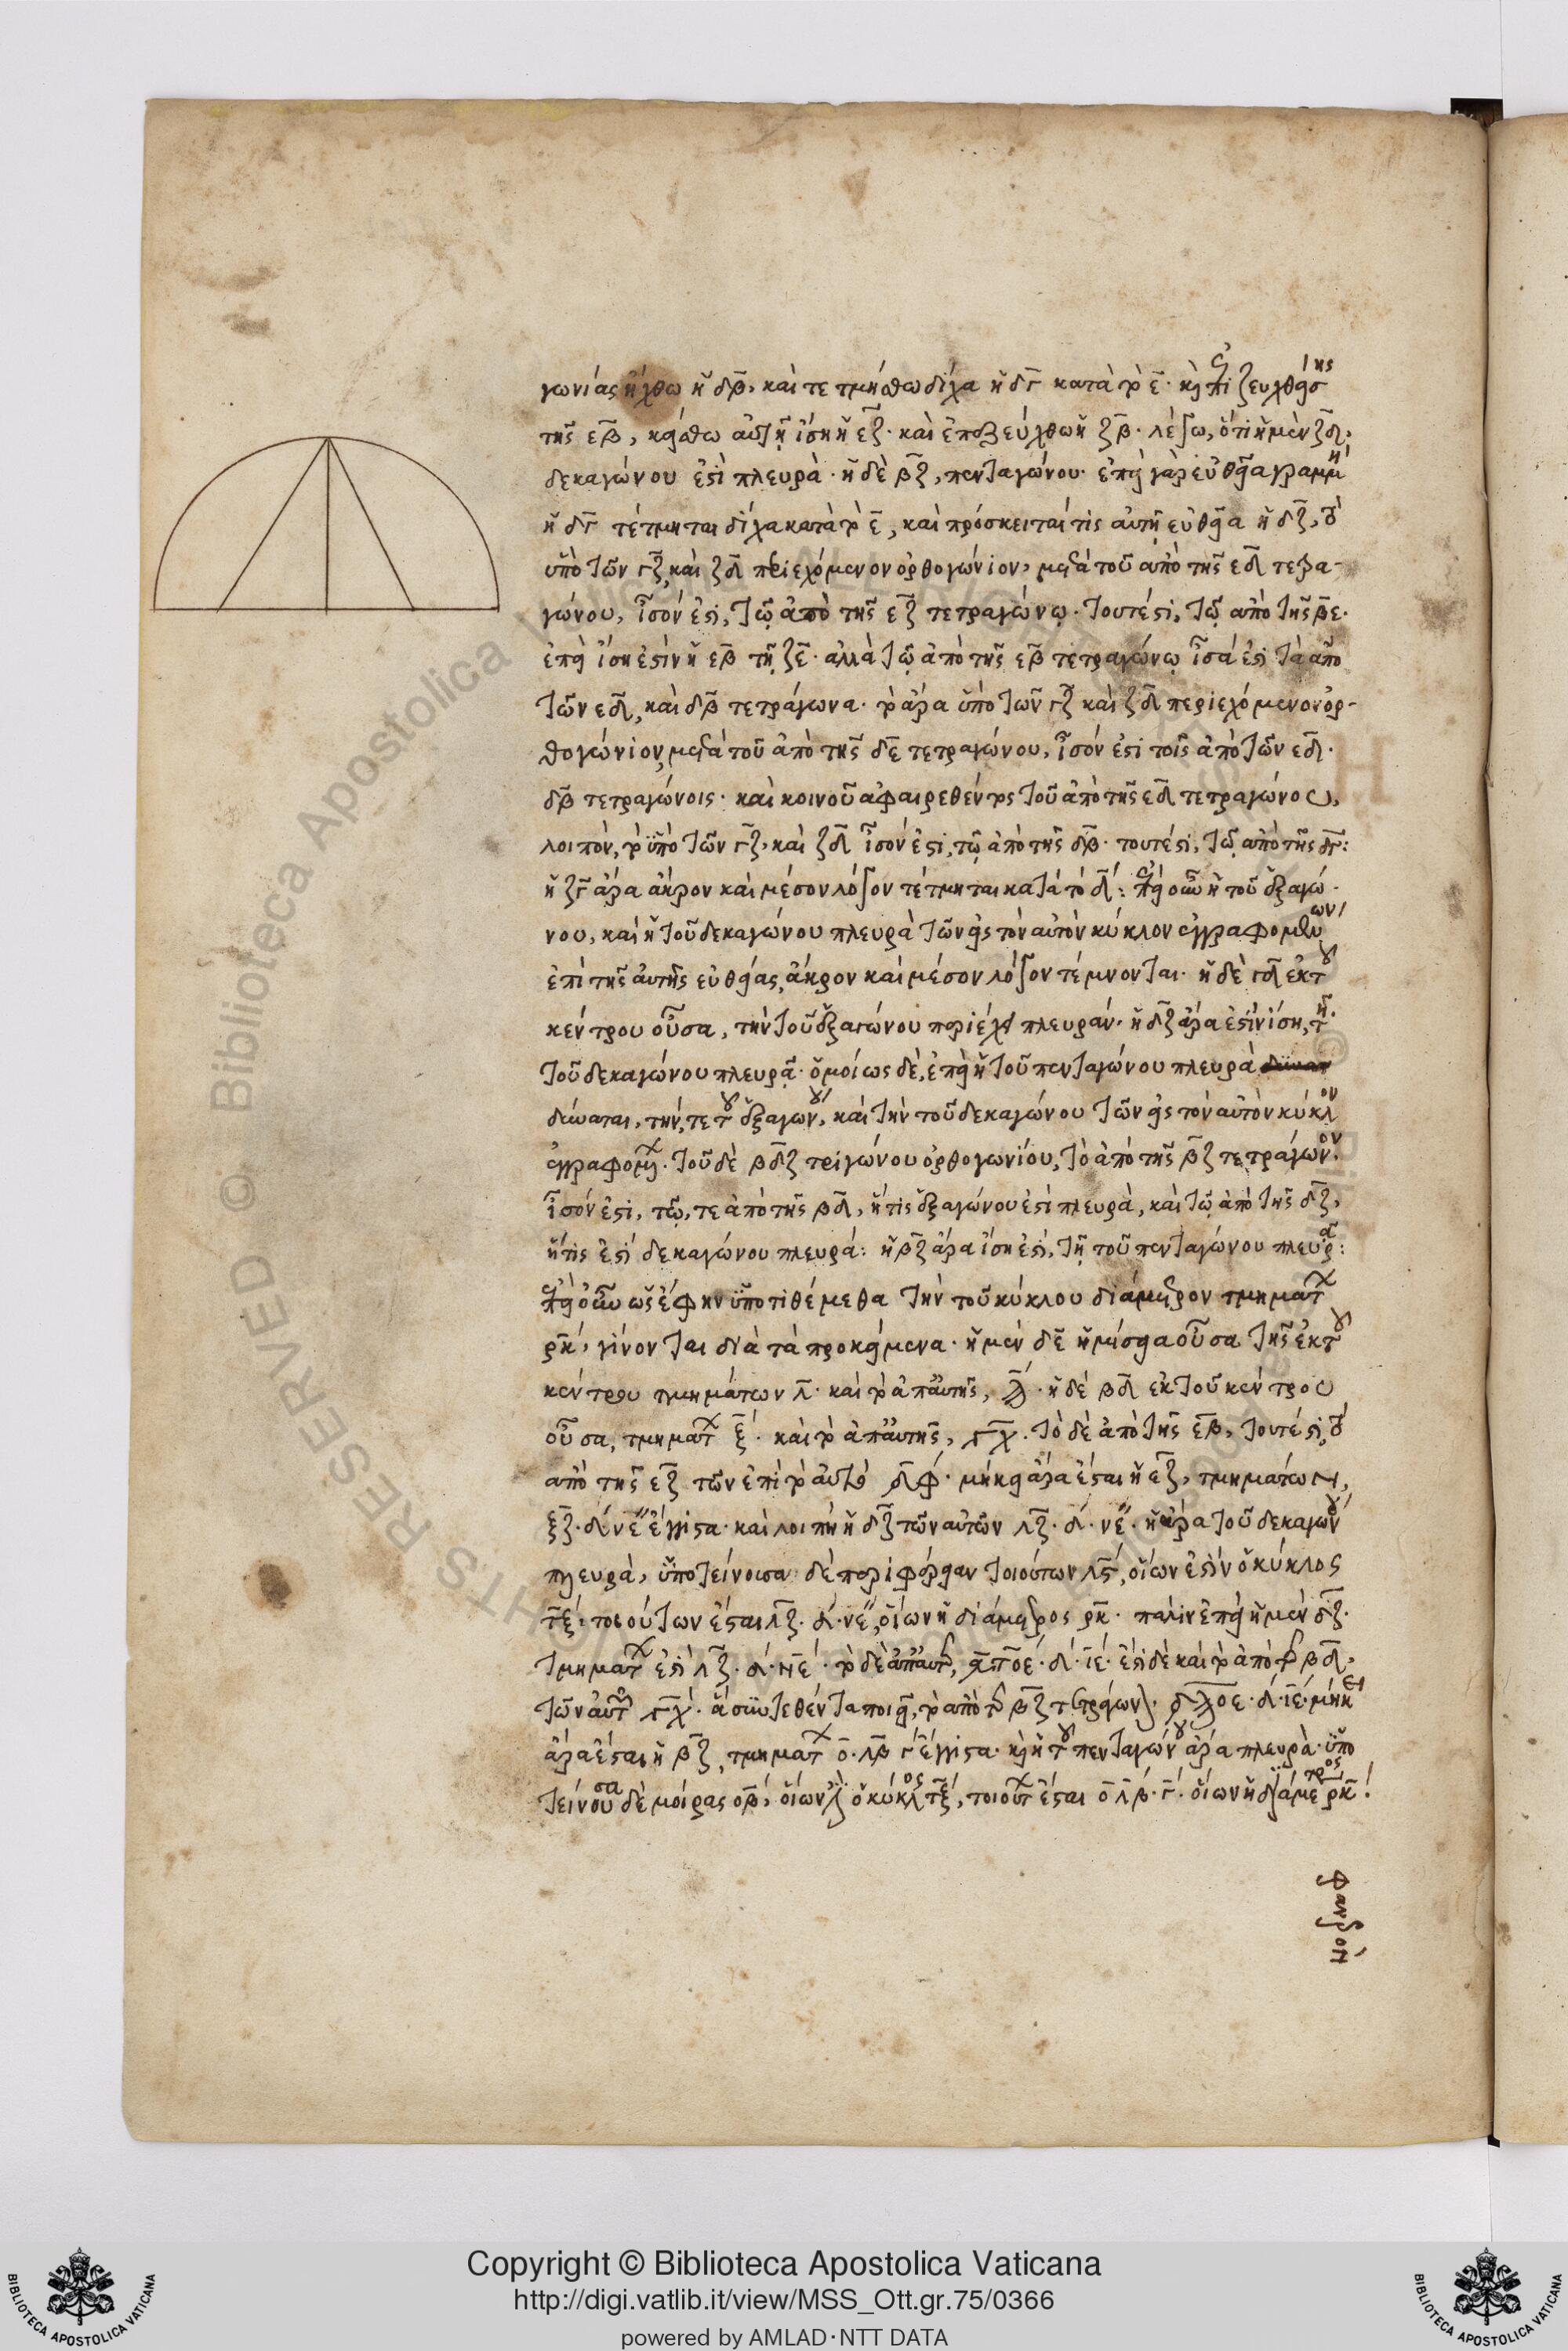 γωνίας ἤχθω ἡ δβ, καὶ τετμήσθω δίχα ἡ δγ κατὰ τὸ ε· καὶ ἐπιζευχθείσης
τῆς εβ, κείσθω αὐτῇ ἴση ἡ εζ· καὶ ἐπεζεύχθω ἡ ζβ· λέγω, ὅτι ἡ μὲν ζδ,
δεκαγώνου ἐστὶ πλευρὰ· ἡ δὲ βζ, πενταγώνου· ἐπεὶ γὰρ εὐθεῖα γραμμὴ
ἡ δγ τέτμηται δίχα κατὰ τὸ ε, καὶ πρόσκειταί τις αὐτῇ εὐθεῖα ἡ δζ, τὸ
ὑπὸ τῶν γζ, καὶ ζδ περιεχόμενον ὀρθογώνιον, μετὰ τοῦ ἀπὸ τῆς εδ τετρα-
γώνου, ἴσόν ἐστι, τῷ ἀπὸ τῆς εζ τετραγώνῳ· τουτέστι, τῷ ἀπὸ τῆς βε·
ἐπεὶ ἴση ἐστὶν ἡ εβ τῇ ζε· ἀλλὰ τῷ ἀπὸ τῆς εβ τετραγώνῳ ἴσά ἐστι τὰ ἀπὸ
τῶν εδ, καὶ δβ τετράγωνα· τὸ ἄρα ὑπὸ τῶν γζ καὶ ζδ περιεχόμενον ὀρ-
θογώνιον, μετὰ τοῦ ἀπὸ τῆς δε τετραγώνου, ἴσόν ἐστι τοῖς ἀπὸ τῶν εδ·
δβ τετραγώνοις· καὶ κοινοῦ ἀφαιρεθέντος τοῦ ἀπὸ τῆς εδ τετραγώνου,
λοιπὸν, τὸ ὑπὸ τῶν γζ, καὶ ζδ ἴσόν ἐστι, τῷ ἀπὸ τῆς δβ· τουτέστι, τῷ ἀπὸ τῆς δγ:
ἡ ζγ ἄρα ἄκρον καὶ μέσον λόγον τέτμηται κατὰ τὸ δ: ἐπεὶ οὖν ἡ τοῦ ἑξαγώ-
νου, καὶ ἡ τοῦ δεκαγώνου πλευρὰ τῶν εἰς τὸν αὐτὸν κύκλον ἐγγραφομένων
ἐπὶ τῆς αὐτῆς εὐθείας, ἄκρον καὶ μέσον λόγον τέμνονται· ἡ δὲ γδ ἐκ τοῦ
κέντρου οὖσα, τὴν τοῦ ἑξαγώνου περιέχει πλευράν· ἡ δζ ἄρα ἐστὶν ἴση, τῇ
τοῦ δεκαγώνου πλευρᾷ· ὁμοίως δὲ, ἐπεὶ ἡ τοῦ πενταγώνου πλευρὰ
δύναται, τήν, τε τοῦ ἑξαγώνου, καὶ τὴν τοῦ δεκαγώνου τῶν εἰς τὸν αὐτὸν κύκλον
ἐγγραφομένων· τοῦ δὲ βδζ τριγώνου ὀρθογωνίου, τὸ ἀπὸ τῆς βζ τετράγωνον·
ἴσόν ἐστι, τῷ, τε ἀπὸ τῆς βδ, ἥτις ἑξαγώνου ἐστὶ πλευρὰ, καὶ τῷ ἀπὸ τῆς δζ,
ἥτις ἐστὶ δεκαγώνου πλευρά: ἡ βζ ἄρα ἴση ἐστὶ, τῇ τοῦ πενταγώνου πλευρᾷ:
ἐπεὶ οὖν ὡς ἔφην ὑποτιθέμεθα τὴν τοῦ κύκλου διάμετρον τμημάτων
ρκ, γίνονται διὰ τὰ προκείμενα· ἡ μὲν δε ἡμίσεια οὖσα τῆς ἐκ τοῦ
κέντρου τμημάτων λ· καὶ τὸ ἀπ' αὐτῆς, ϡ· ἡ δὲ βδ ἐκ τοῦ κέντρου
οὖσα, τμημάτων ξ· καὶ τὸ ἀπ' αὐτῆς, γχ· τὸ δὲ ἀπὸ τῆς εβ, τουτέστι, τὸ
ἀπὸ τῆς εζ τῶν ἐπὶ τὸ αὐτὸ δφ· μήκει ἄρα ἔσται ἡ εζ, τμημάτων,
ξζ· δ νε ἔγγιστα· καὶ λοιπὴ ἡ δζ τῶν αὐτῶν λζ· δ· νε· ἡ ἄρα τοῦ δεκαγώνου
πλευρὰ, ὑποτείνουσα δὲ περιφέρειαν τοιούτων λς, οἵων ἐστὶν ὁ κύκλος
τξ, τοιούτων ἔσται λζ· δ· νε, οἵων ἡ διάμετρος ρκ· πάλιν ἐπεὶ ἡ μὲν δζ·
τμημάτων ἐστὶ λζ· δ· νε· τὸ δὲ ἀπ' αὐτῆς, ατοε· δ· ιε· ἔστι δὲ καὶ τὸ ἀπὸ τῆς βδ,
τῶν αὐτῶν γχ· ἃ συντεθέντα ποιεῖ, τὸ ἀπὸ τῆς βζ τετράγωνον· δϡοε· δ· ιε· μήκει
ἄρα ἔσται ἡ βζ, τμημάτων ο· λβ γ ἔγγιστα· καὶ ἡ τοῦ πενταγώνου ἄρα πλευρὰ· ὑπο
τείνουσα δὲ μοίρας οβ, οἵων ἐστὶν ὁ κύκλος τξ, τοιούτων ἔσται ο λβ· γ· οἵων ἡ διάμετρος ρκ·
Copyright © Biblioteca Apostolica Vaticana
http://digi.vatlib.it/view/MSS_Ott.gr.75/0366
powered by AMLAD·NTT DATA
BIBLIOTECA APOSTOLICA VATICANA
BIBLIOTECA APOSTOLICA VATICANA